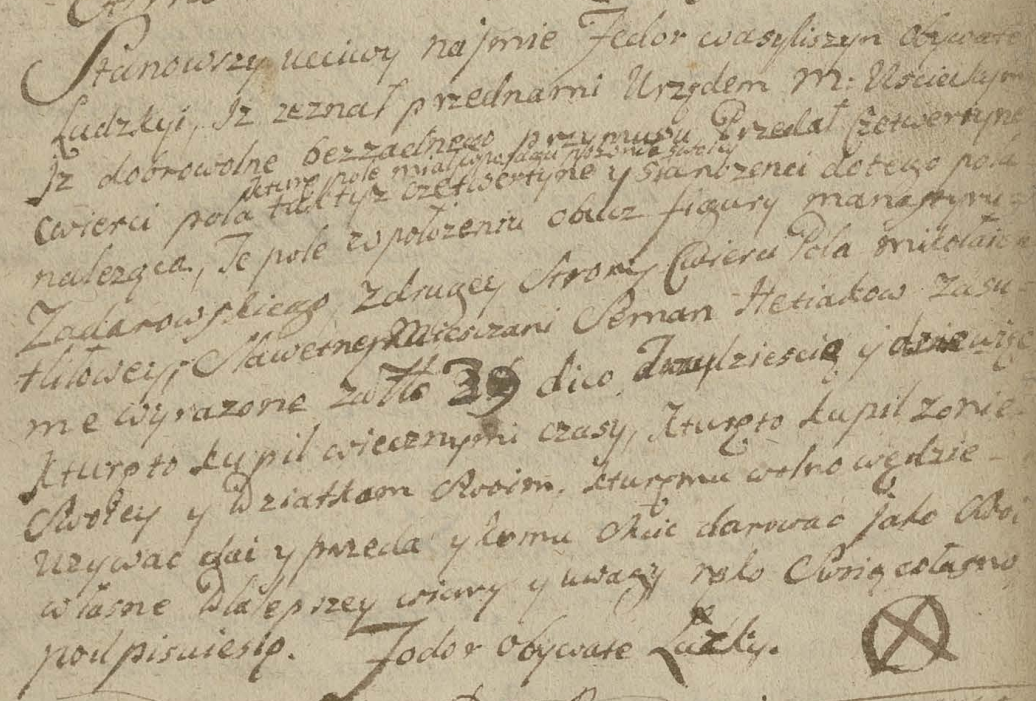 Stanowszy ucciwy najmie Fedor wasyliszyn Obywate
Ludzkyi, Jz zeznał przednami Urzędem M: Uscieczkim
Jz dobrowolne bezzadnego przymusu Przedał Czetwertyne
kture pole miał wposagu pożonie swoiey
cwierci pola taktyz czetwertyne y Sianozenci dotego pola
naleząca, Te pole wpołozeniu obucz figury manastyru
Zadarowskiego, zdrugey Strony Cwierci Pola mikołaie
tiłowey, Sławetney Miesczani Seman Hetiakow Zasu
me wyrazone zatt0 39 dico Trzydziescie y dziewięc
kturyto kypil wiecznymi czasy, kturyto kupil zonie
Swoiey y Dziatkam Swoim, kturymu wolno wędzie
Uzywac dai y przeda y komu chic darowac jako Swoi
własne Dlalepszey wiary y uwagy ręko Swoią własno
podpisuiesię. Fodor obywate Ludzky.